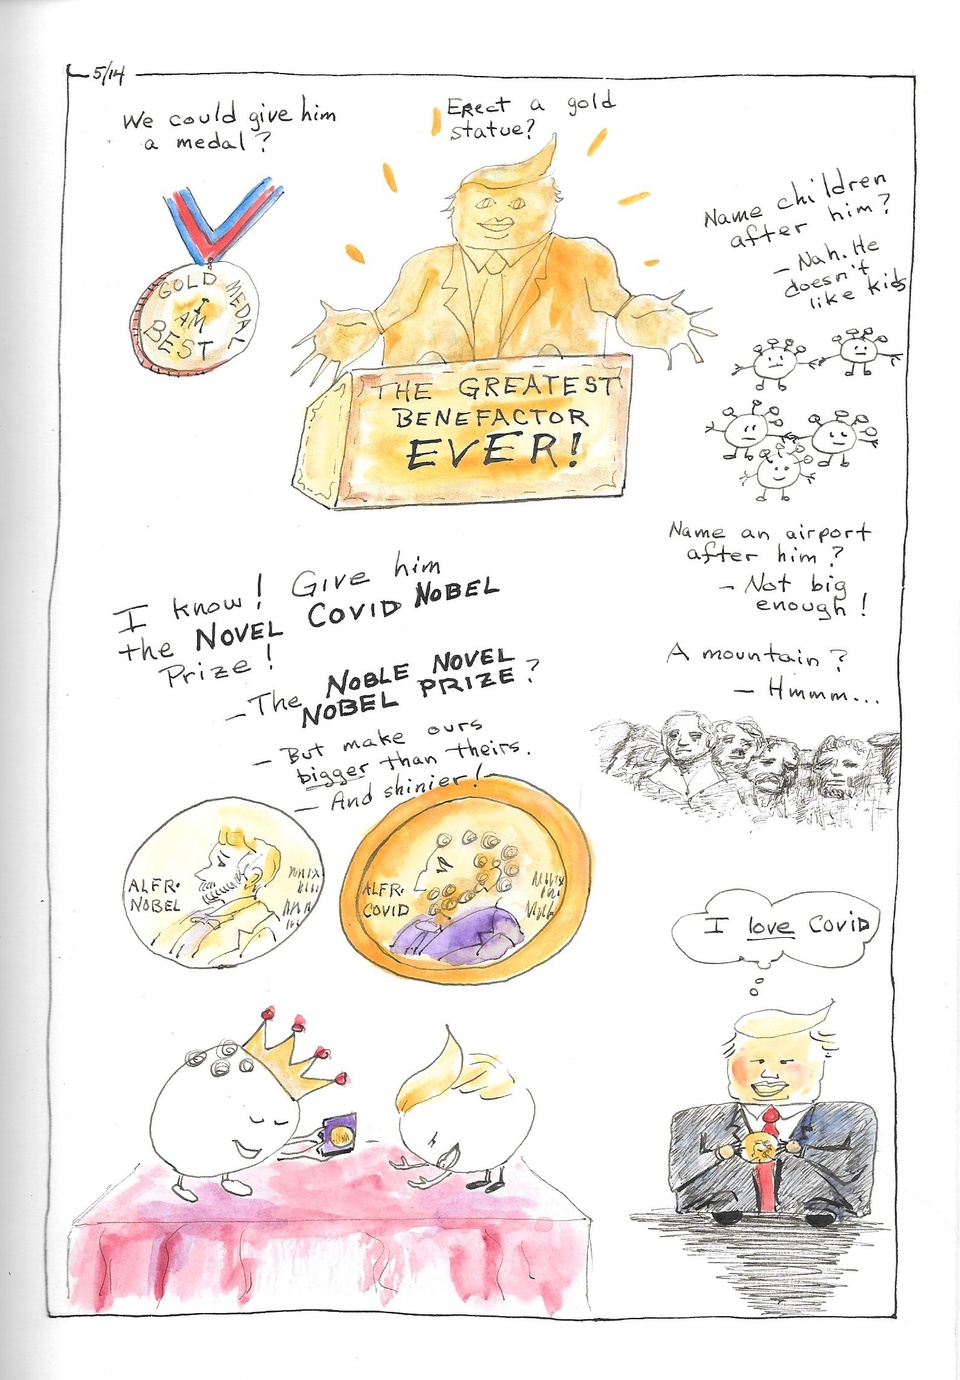 5/14
We could give him
a medal?
GOLD MEDAL
I
AM
BEST
Erect a gold
statue?
THE GREATEST
BENEFACTOR
EVER!
Name children
after him?
- Nah. He
doesn't
like kids
Name an airport
after him?
- Not big
enough!
A mountain?
- Hmmm...
I know! Give him
the NOVEL COVID NOBEL
Prize!
- The NOBLE NOVEL
NOBEL PRIZE?
- But make ours
bigger than theirs.
- And shinier!
ALFR.
NOBEL
ALFR.
COVID
I love Covid